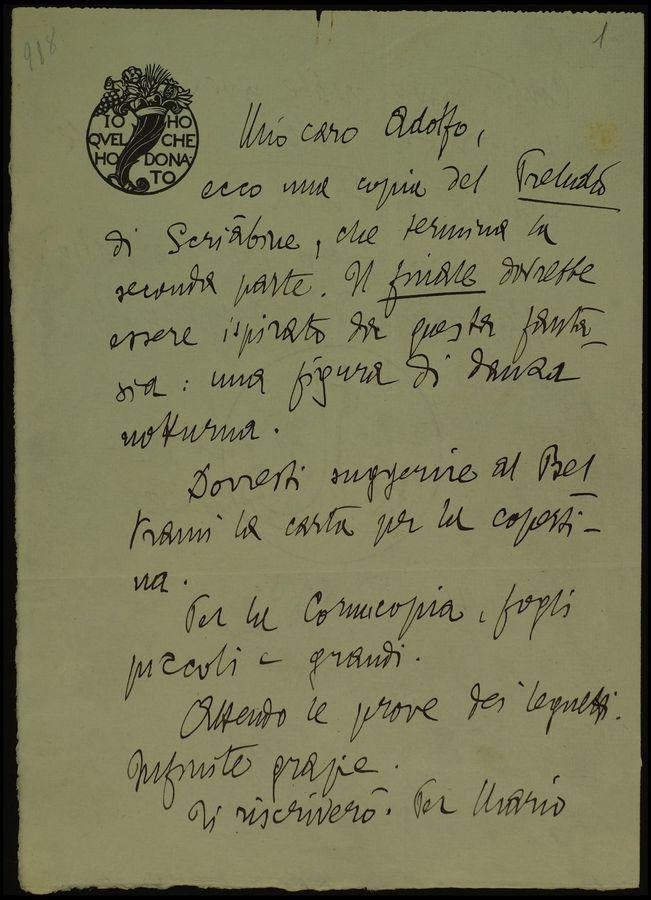 988
1
IO HO
QVEL CHE
HO DONA
TO
Mio caro Adolfo,
ecco una copia del Preludio
di Scriàbine, che termina la
seconda parte. Il finale dovrebbe
essere ispirato da questa fanta-
sia: una figura di danza
notturna.
Dovresti suggerire al Bel
trami la carta per la coperti-
na.
Per la Cornucopia, fogli
piccoli e grandi.
Attendo le prove dei legnetti.
Infinite grazie.
Ti riscriverò. Per Mario